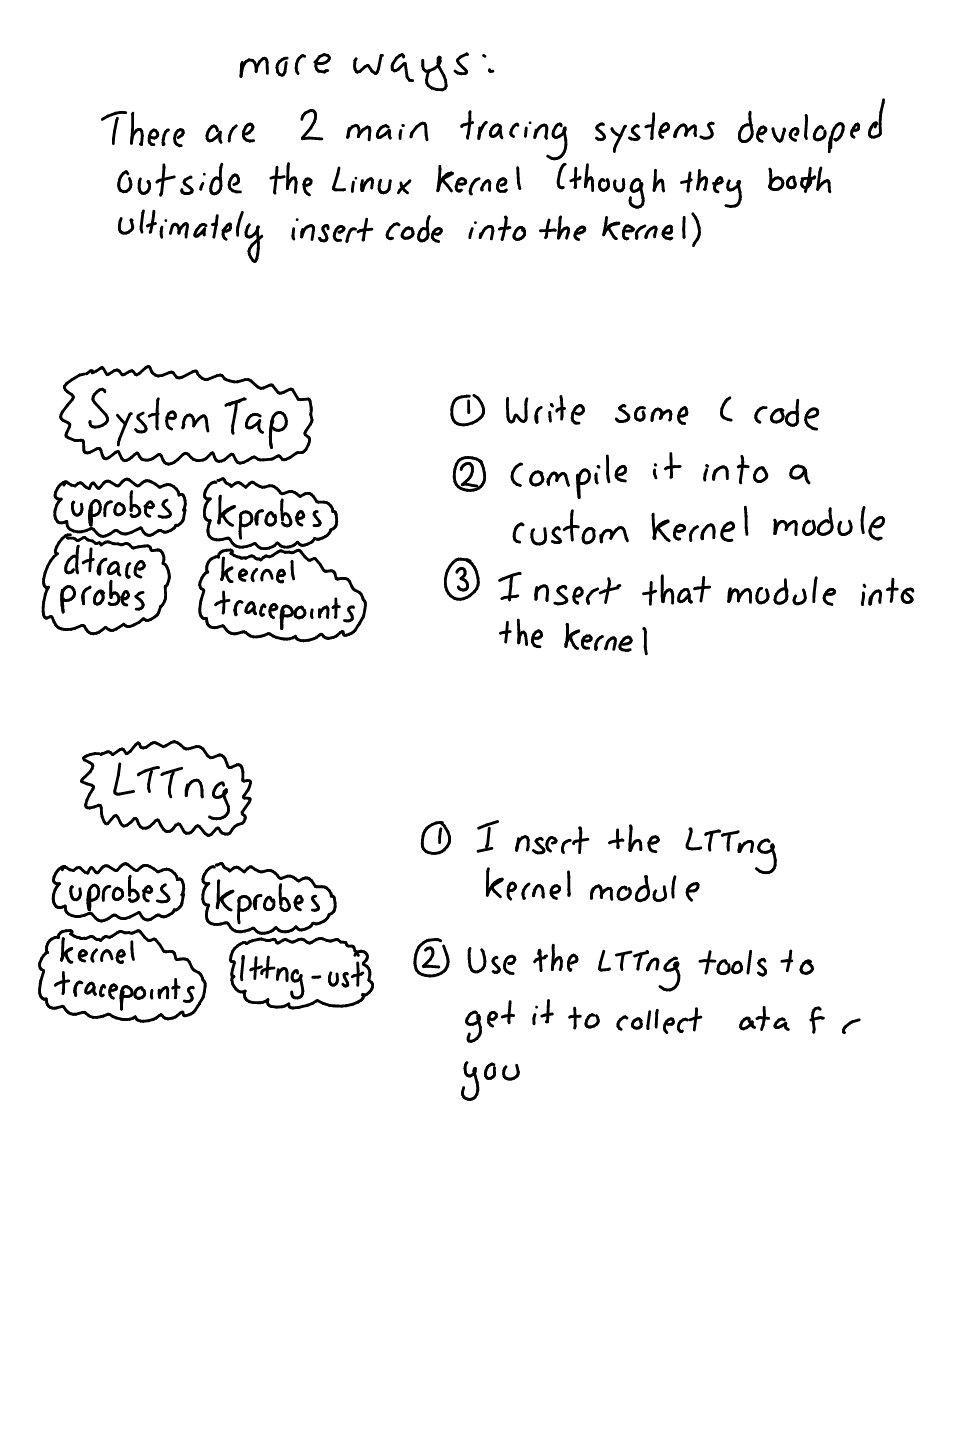 more ways:
There are 2 main tracing systems developed
outside the Linux kernel (though they both
ultimately insert code into the kernel)
System Tap
uprobes kprobes
dtrace
probes
kernel
tracepoints
① Write some C code
② Compile it into a
custom kernel module
③ Insert that module into
the kernel
LTTng
uprobes kprobes
kernel
tracepoints
lttng-ust
① Insert the LTTng
kernel module
② Use the LTTng tools to
get it to collect ata f r
you